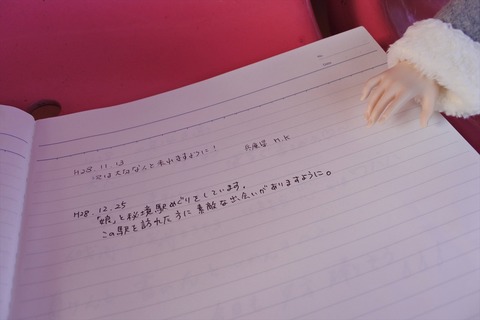 No.
Date
H28.11.13
次は犬はなんと来れますように! 兵庫県 M.K
H28.12.25
「娘」と秘境駅めぐりをしています。
この駅を訪れた方に素敵な出会いがありますように。